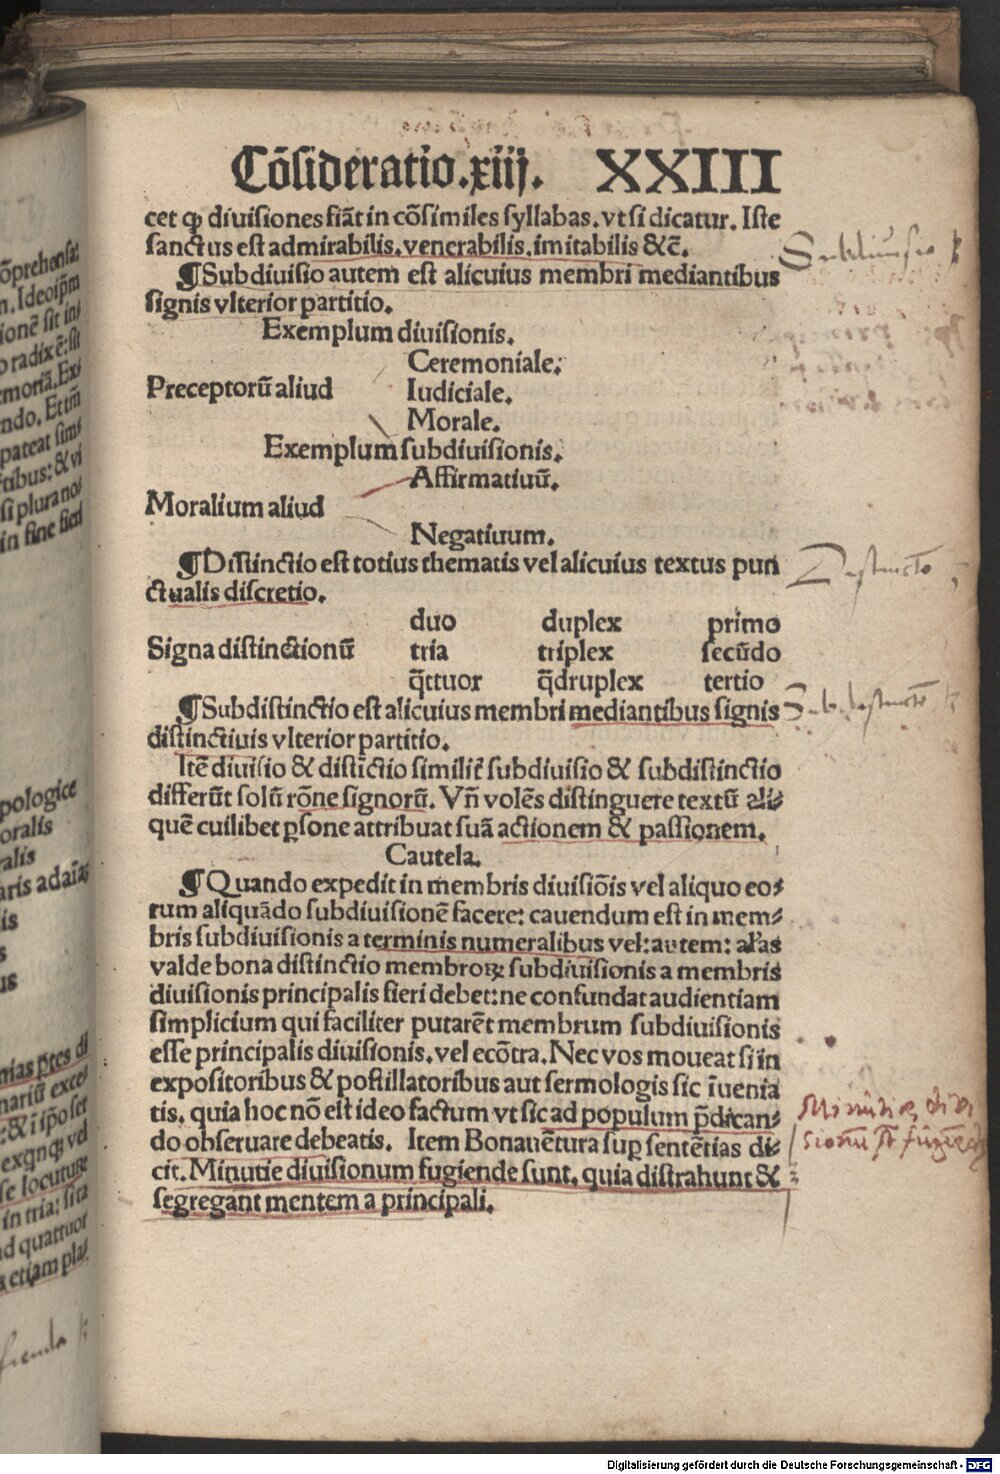 Cōsideratio.xiij. XXIII
cet ꝙ diuisiones fiāt in cōsimiles syllabas.vt si dicatur. Iste
sanctus est admirabilis.venerabilis.imitabilis &c̄.
¶Subdiuisio autem est alicuius membri mediantibus
signis vlterior partitio.
Exemplum diuisionis.
Ceremoniale:
Preceptorū aliud Iudiciale.
Morale.
Exemplum subdiuisionis.
Affirmatiuū.
Moralium aliud
Negatiuum.
¶Distinctio est totius thematis vel alicuius textus pun
ctualis discretio.
duo duplex primo
Signa distinctionū tria triplex secūdo
q̄ttuor q̄druplex tertio
¶Subdistinctio est alicuius membri mediantibus signis
distinctiuis vlterior partitio.
Itē diuisio & distictio similiř subdiuisio & subdistinctio
differūt solū rōne signorū. Vn̄ volēs distinguere textū ali⸗
quē cuilibet ꝑsone attribuat suā actionem & passionem.
Cautela.
¶Quando expedit in membris diuisiōis vel aliquo eo⸗
rum aliquādo subdiuisionē facere: cauendum est in mem⸗
bris subdiuisionis a terminis numeralibus vel: autem: al'as
valde bona distinctio membroꝝ subdiuisionis a membris
diuisionis principalis fieri debet: ne confundat audientiam
simplicium qui faciliter putarēt membrum subdiuisionis
esse principalis diuisionis. vel ecōtra. Nec vos moueat si in
expositoribus & postillatoribus aut sermologis sic īuenia
tis. quia hoc nō est ideo factum vt sic ad populum p̄dican⸗
do obseruare debeatis. Item Bonauētura suꝑ sentētias di⸗
cit. Minutie diuisionum fugiende sunt. quia distrahunt &
segregant mentem a principali.
Subdiuisio
Distinctio
Subdistinctio
ōprehensa:
n. Ideo ip̄m
ionē sit in⸗
o radix ē: sit
emoriā. Ex⸗
ndo. Et tm̄
pateat sim⸗
ctibus: & vi
si plura no⸗
in fine fieri
pologice
oralis
ralis
aris ad aīā:
is
s
us